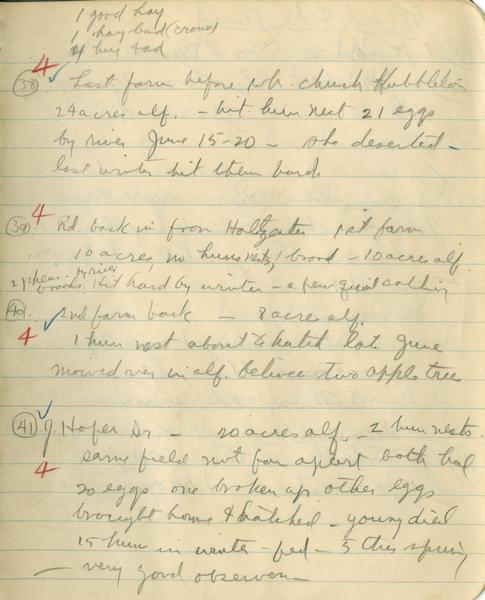 1 good hay
1 hay bad (crows)
4 hung bad
4
38 Last farm before wh. church Hubbleton
24 acres alf. - hit hun nest 21 eggs
by river June 15-20 - she deserted -
last winter hit them hard.
4
39 Rd. back in from Holtzgater 1st farm
10 acres, no huns nests, 1 brood - 10 acre alf.
2 phea. broods by river, hit hard by winter - a few quail calling
40. 2nd farm back - 8 acre alf.
4 1 hun nest about to hatch late June
mowed over in alf. between two apple tree
41 J. Hofer Sr - 20 acres alf. - 2 hun nests
same field not far apart both had
4
20 eggs one broken up. other eggs
brought home & hatched - young died
15 hun in winter - fed - 5 this spring
- very good observer -